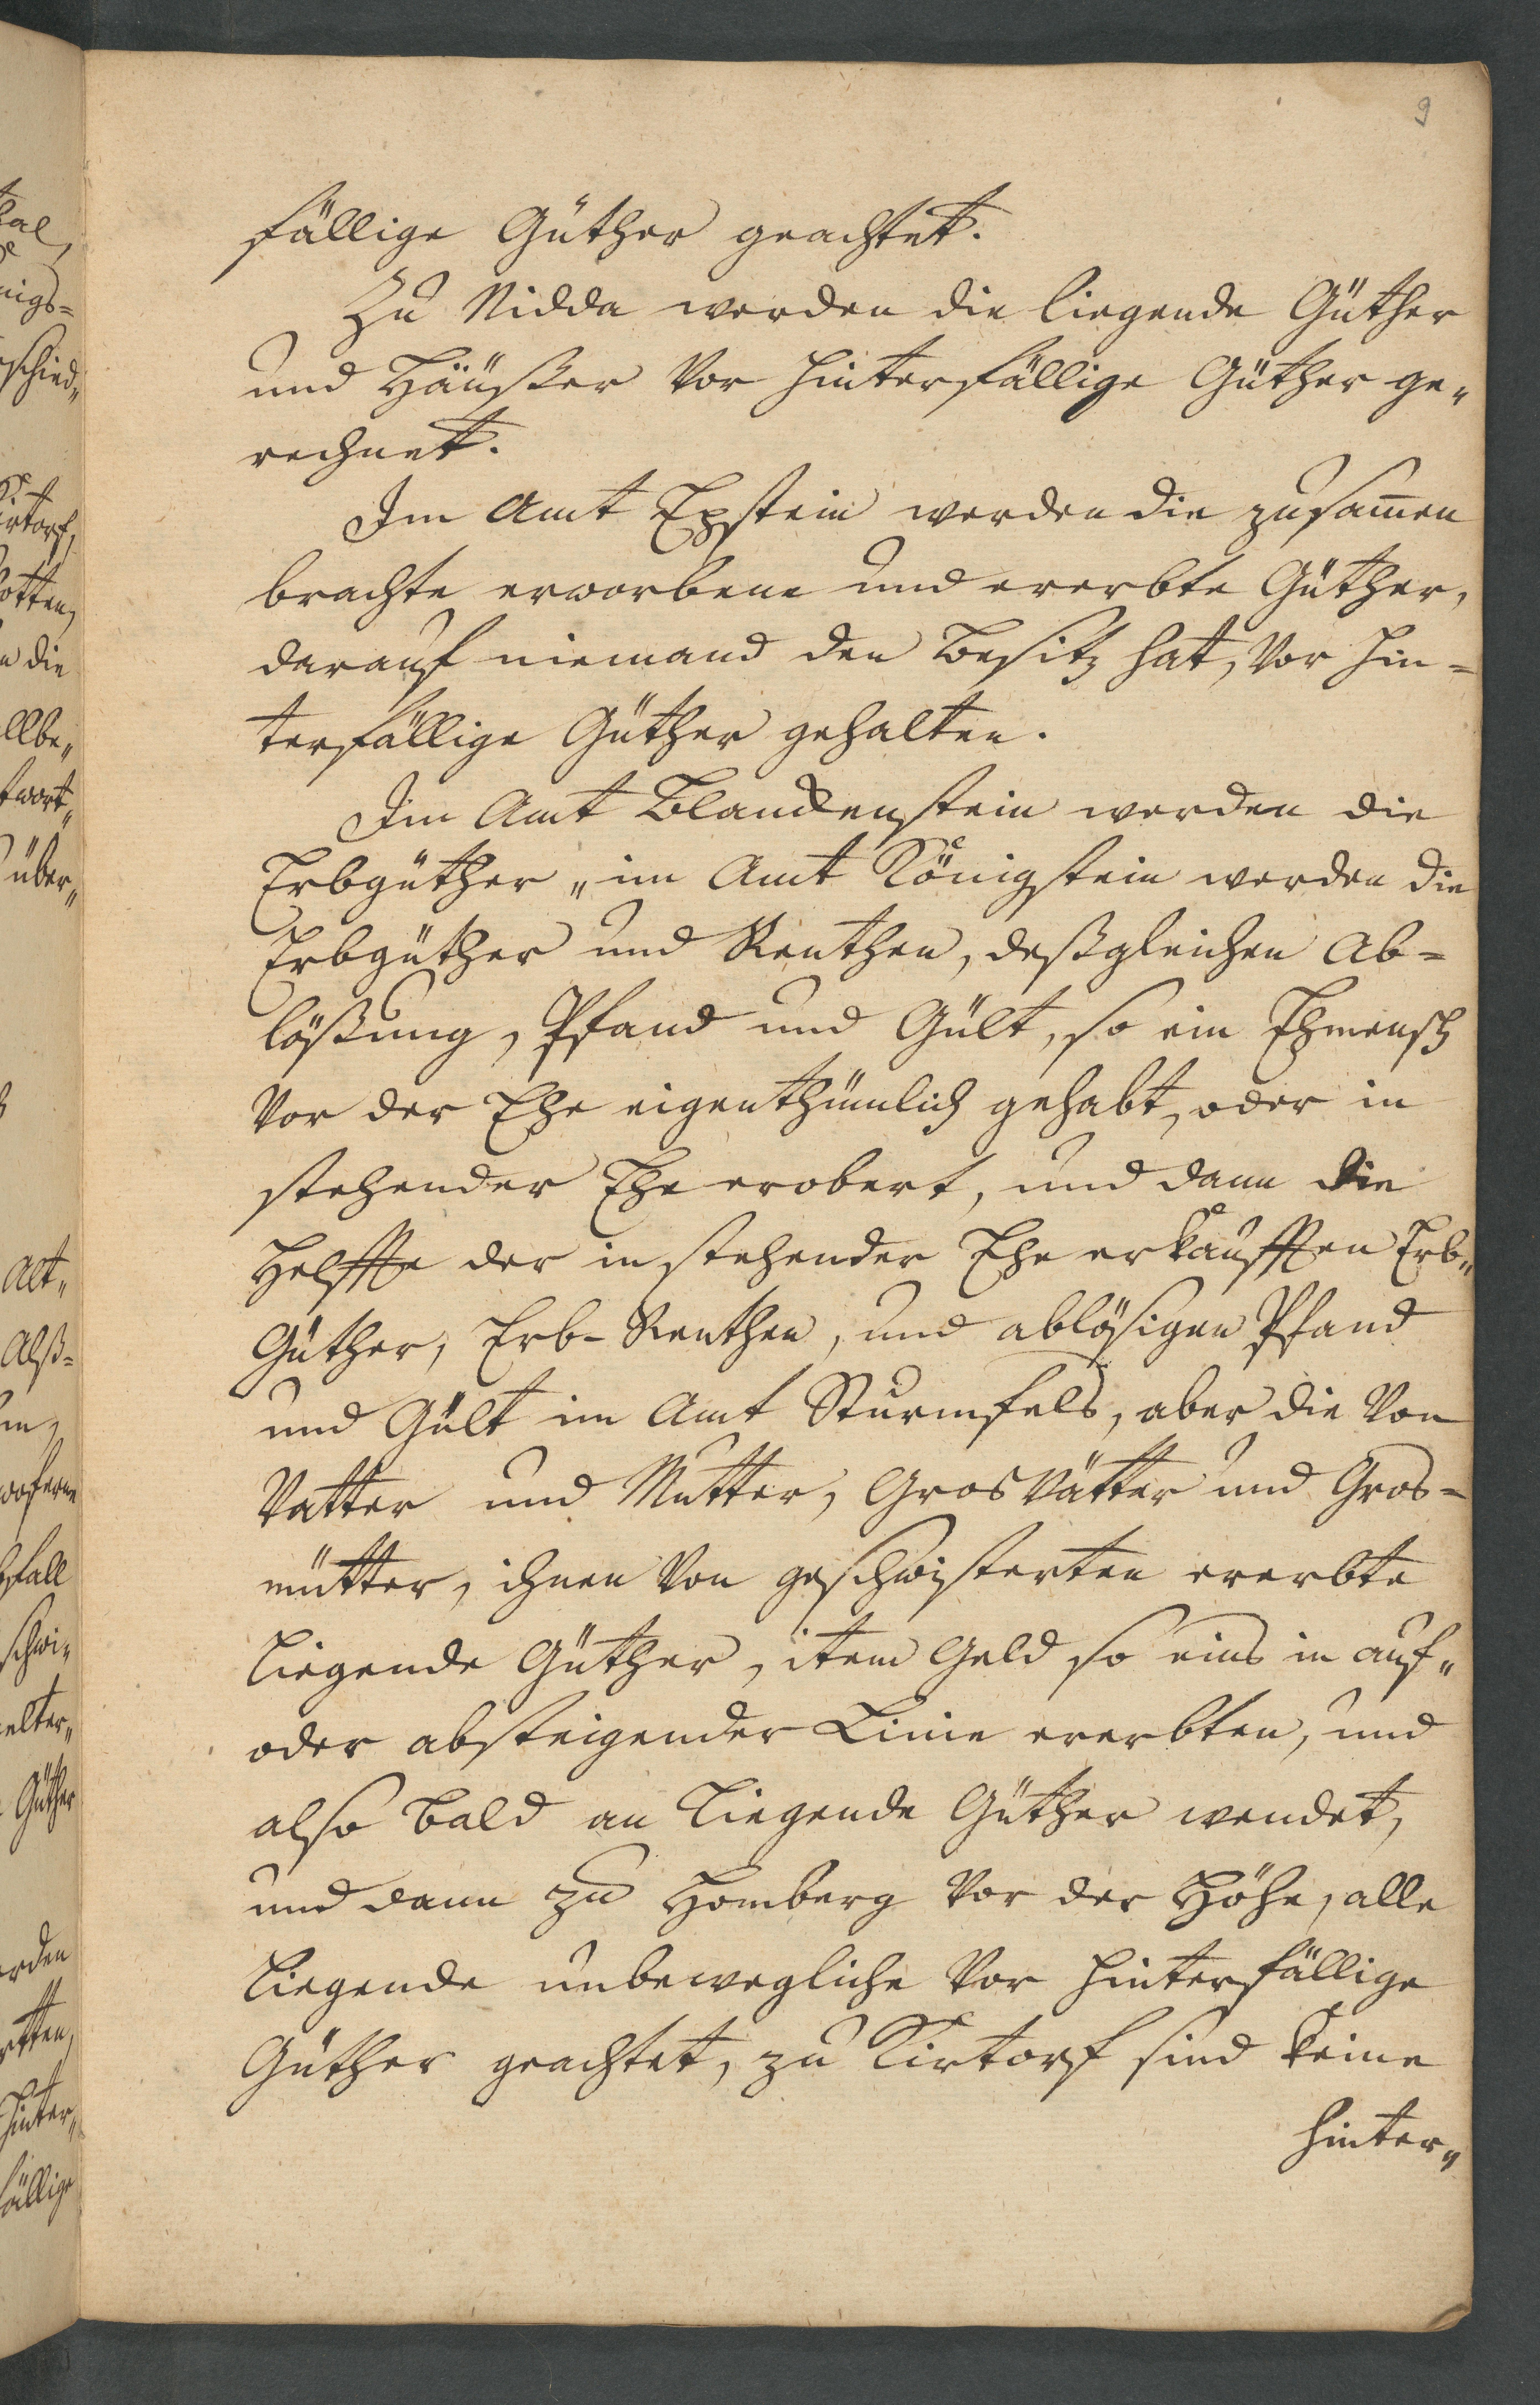 9
fällige Güther geachtet.
Zu Nidda werden die liegende Güther
und Häußer vor hinterfällige Güther ge„
rechnet.
Im Amt Epstein werden die zusam̄en
brachte erworbene und ererbte Güther,
darauf niemand den Besitz hat, vor hin=
terfällige Güther gehalten.
Im Amt Blanckenstein werden die
Erbgüther „ im Amt Königstein werden die
Erbgüther und Renthen, deßgleichen Ab=
lößung, Pfand und Gült, so ein Ehmensch
vor der Ehe eigenthümlich gehabt, oder in
stehender Ehe erobert, und dann die
Helffte der in stehender Ehe erkaufften Erb„
Güther, Erb- Renthen, und ablösigen Pfand
und Gült im Amt Sturmfels, aber die von
Vatter und Mutter, Gros Vätter und Gros=
mütter, ihnen von geschwisterten ererbte
Liegende Güther, item Geld so eins in auf„
oder absteigender Linie ererbten, und
also bald an Liegende Güther wendet,
und dann zu Homberg vor der Höhe, alle
Liegende unbewegliche vor hinterfällige
Güther geachtet, zu Kirtorf sind keine
hinter„